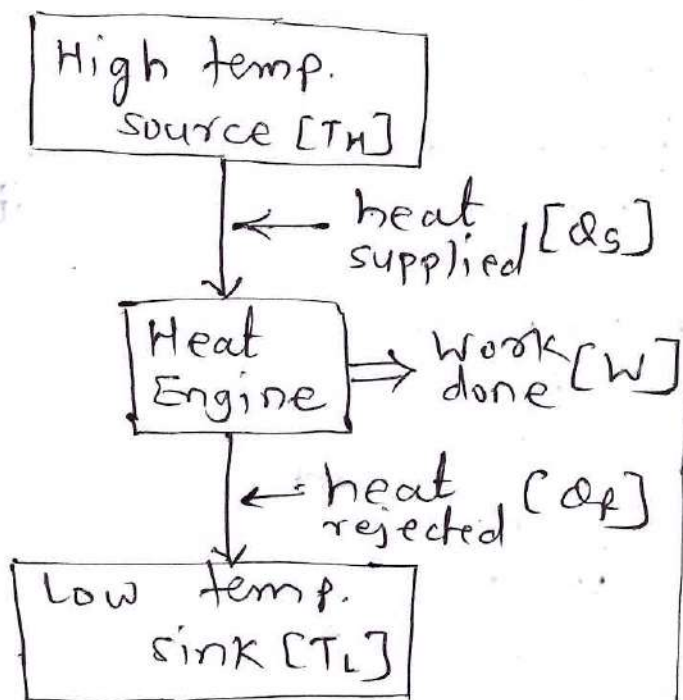 High temp.
source [TH]
heat [QS]
supplied
Heat
Engine
Work [W]
done
heat [QR]
rejected
Low temp.
sink [TL]